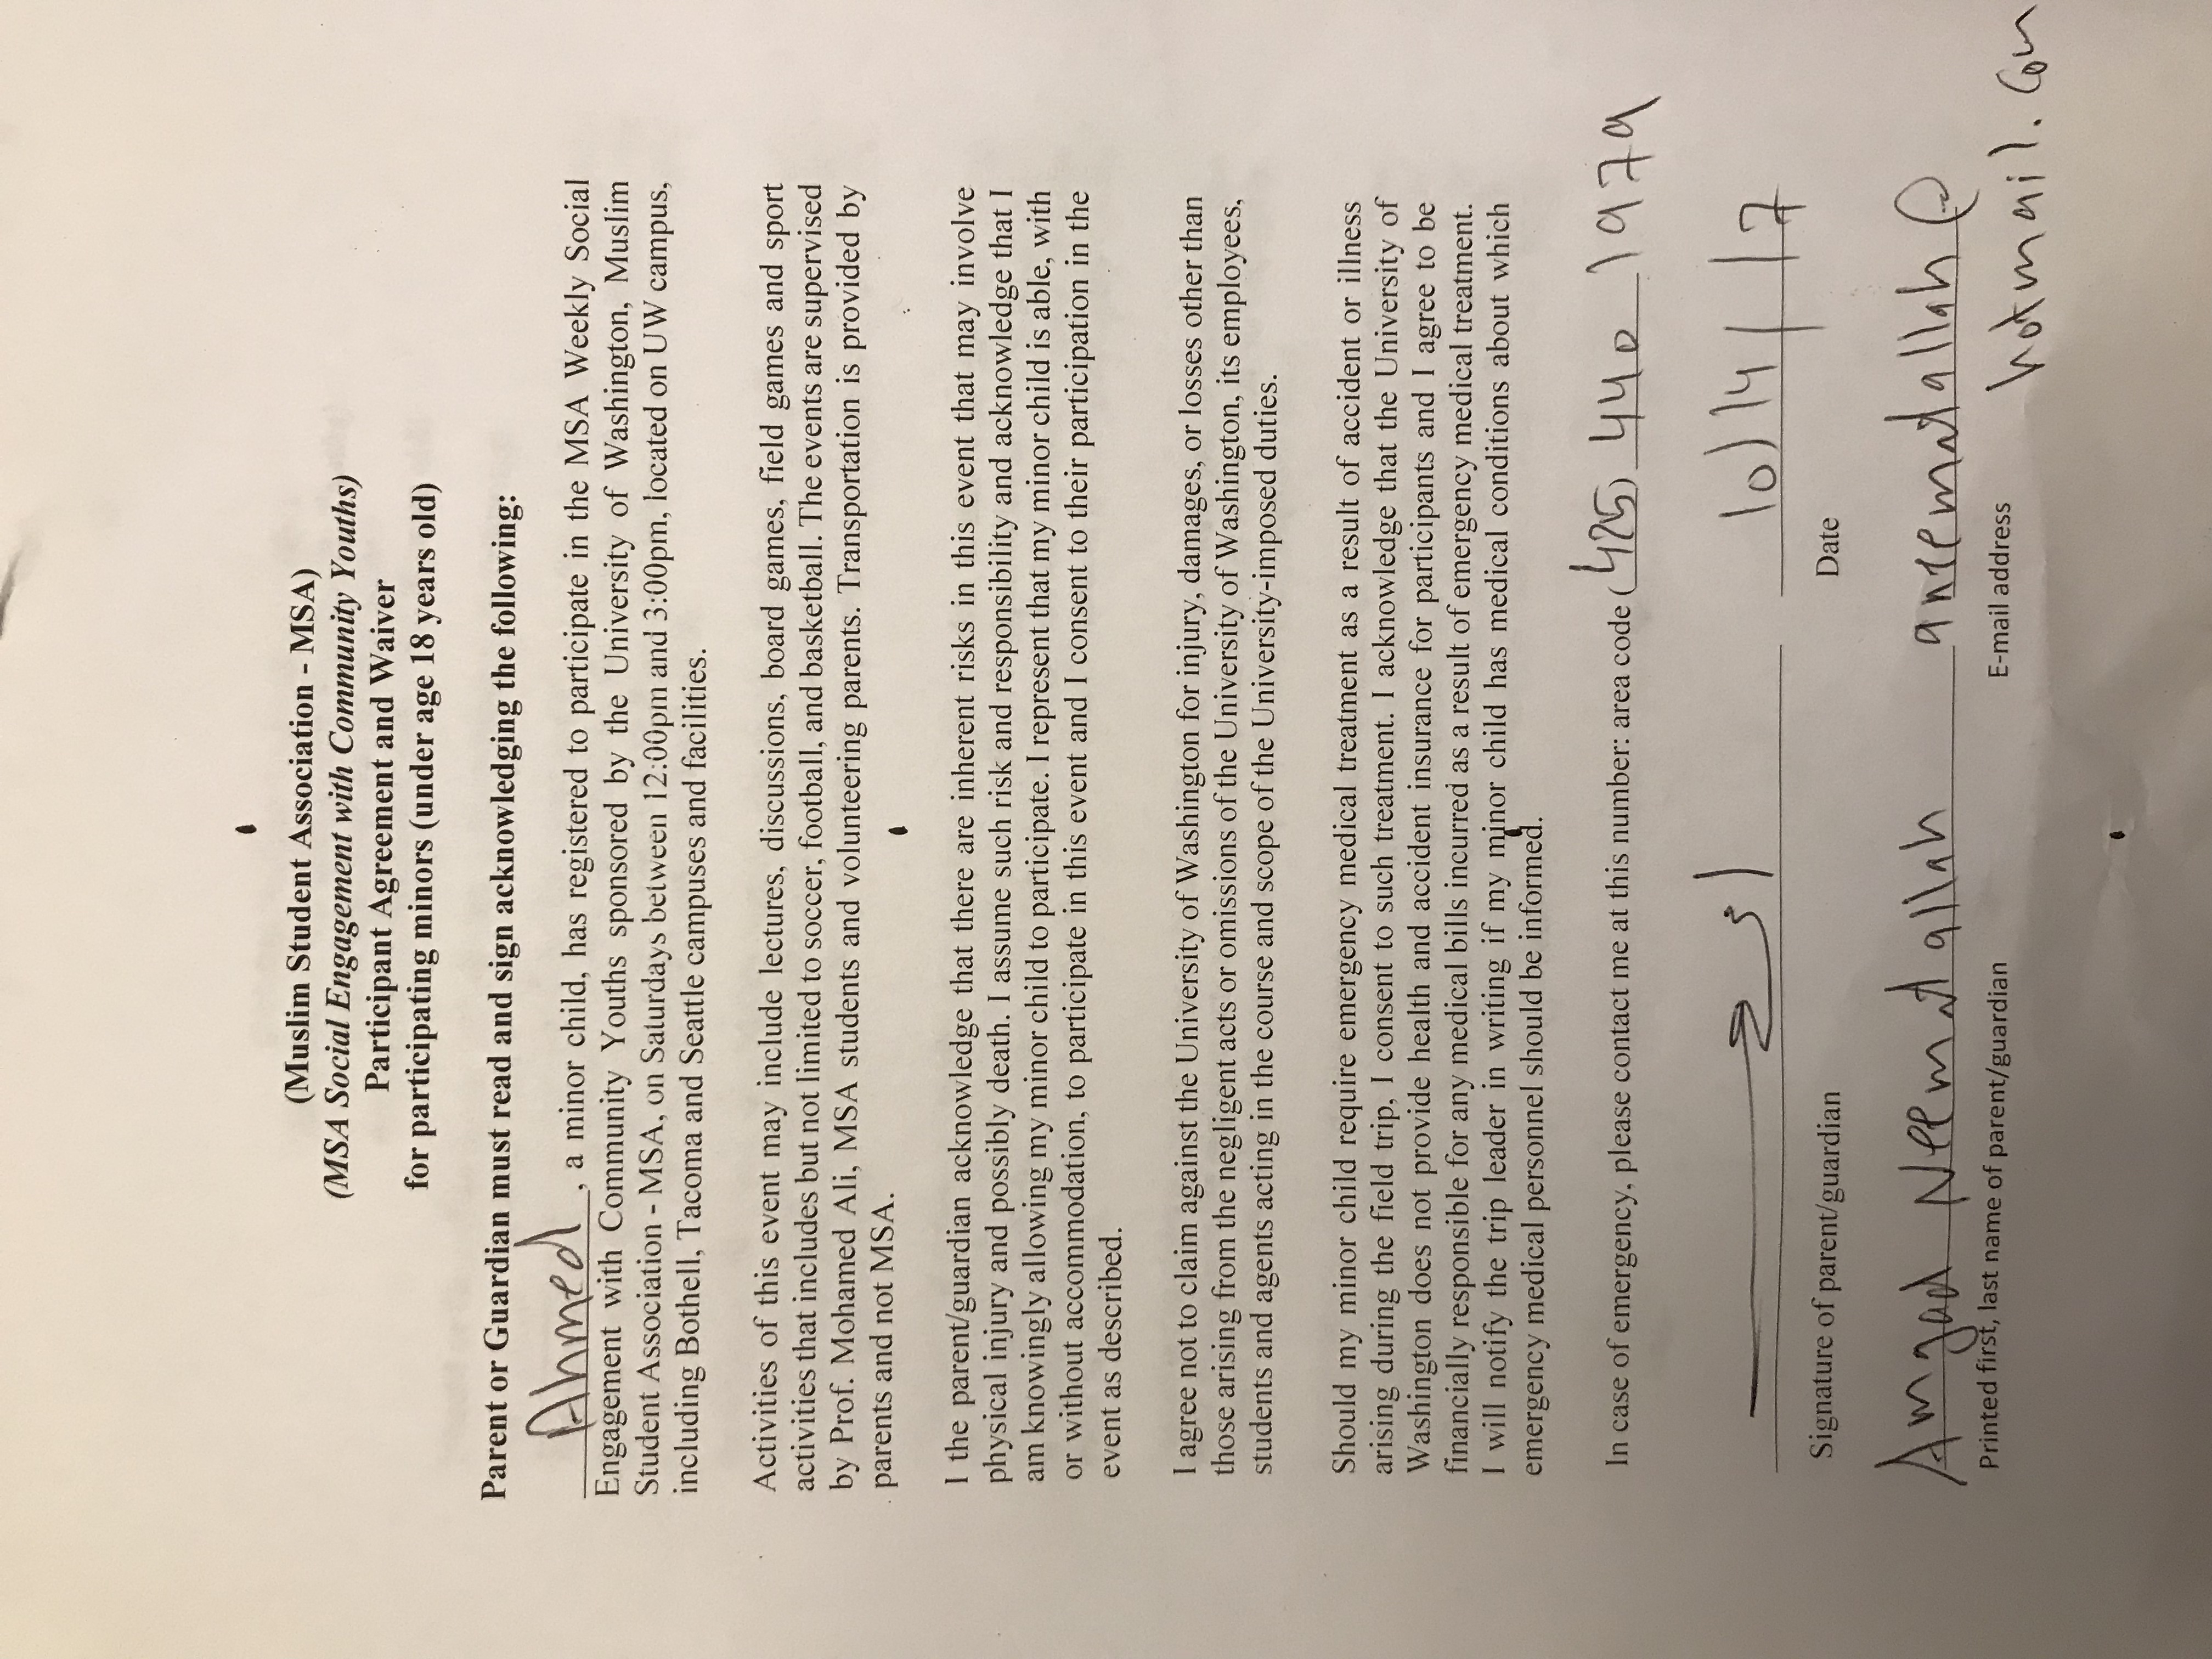 (Muslim Student Association - MSA)
(MSA Social Engagement with Community Youths)
Participant Agreement and Waiver
for participating minors (under age 18 years old)
Parent or Guardian must read and sign acknowledging the following:
Ahmed, a minor child, has registered to participate in the MSA Weekly Social
Engagement with Community Youths sponsored by the University of Washington, Muslim
Student Association - MSA, on Saturdays between 12:00pm and 3:00pm, located on UW campus,
including Bothell, Tacoma and Seattle campuses and facilities.
Activities of this event may include lectures, discussions, board games, field games and sport
activities that includes but not limited to soccer, football, and basketball. The events are supervised
by Prof. Mohamed Ali, MSA students and volunteering parents. Transportation is provided by
parents and not MSA.
I the parent/guardian acknowledge that there are inherent risks in this event that may involve
physical injury and possibly death. I assume such risk and responsibility and acknowledge that I
am knowingly allowing my minor child to participate. I represent that my minor child is able, with
or without accommodation, to participate in this event and I consent to their participation in the
event as described.
I agree not to claim against the University of Washington for injury, damages, or losses other than
those arising from the negligent acts or omissions of the University of Washington, its employees,
students and agents acting in the course and scope of the University-imposed duties.
Should my minor child require emergency medical treatment as a result of accident or illness
arising during the field trip, I consent to such treatment. I acknowledge that the University of
Washington does not provide health and accident insurance for participants and I agree to be
financially responsible for any medical bills incurred as a result of emergency medical treatment.
I will notify the trip leader in writing if my minor child has medical conditions about which
emergency medical personnel should be informed.
In case of emergency, please contact me at this number: area code (425) 440 1979
10/14/17
Signature of parent/guardian Date
Amgad Neematallah aneematallah@
Printed first, last name of parent/guardian E-mail address
hotmail.com